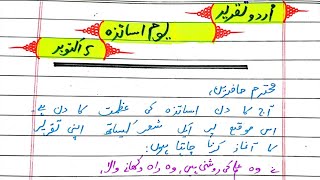 اردو تقریر
یوم اساتذہ
5 اکتوبر
محترم حاضرین،
آج کا دن اساتذہ کی عظمت کا دن ہے
اس موقع پر ایک شعر کیساتھ اپنی تقریر
کا آغاز کرنا چاہتا ہوں:
وہ علم کی روشنی ہیں، وہ راہ دکھانے والے